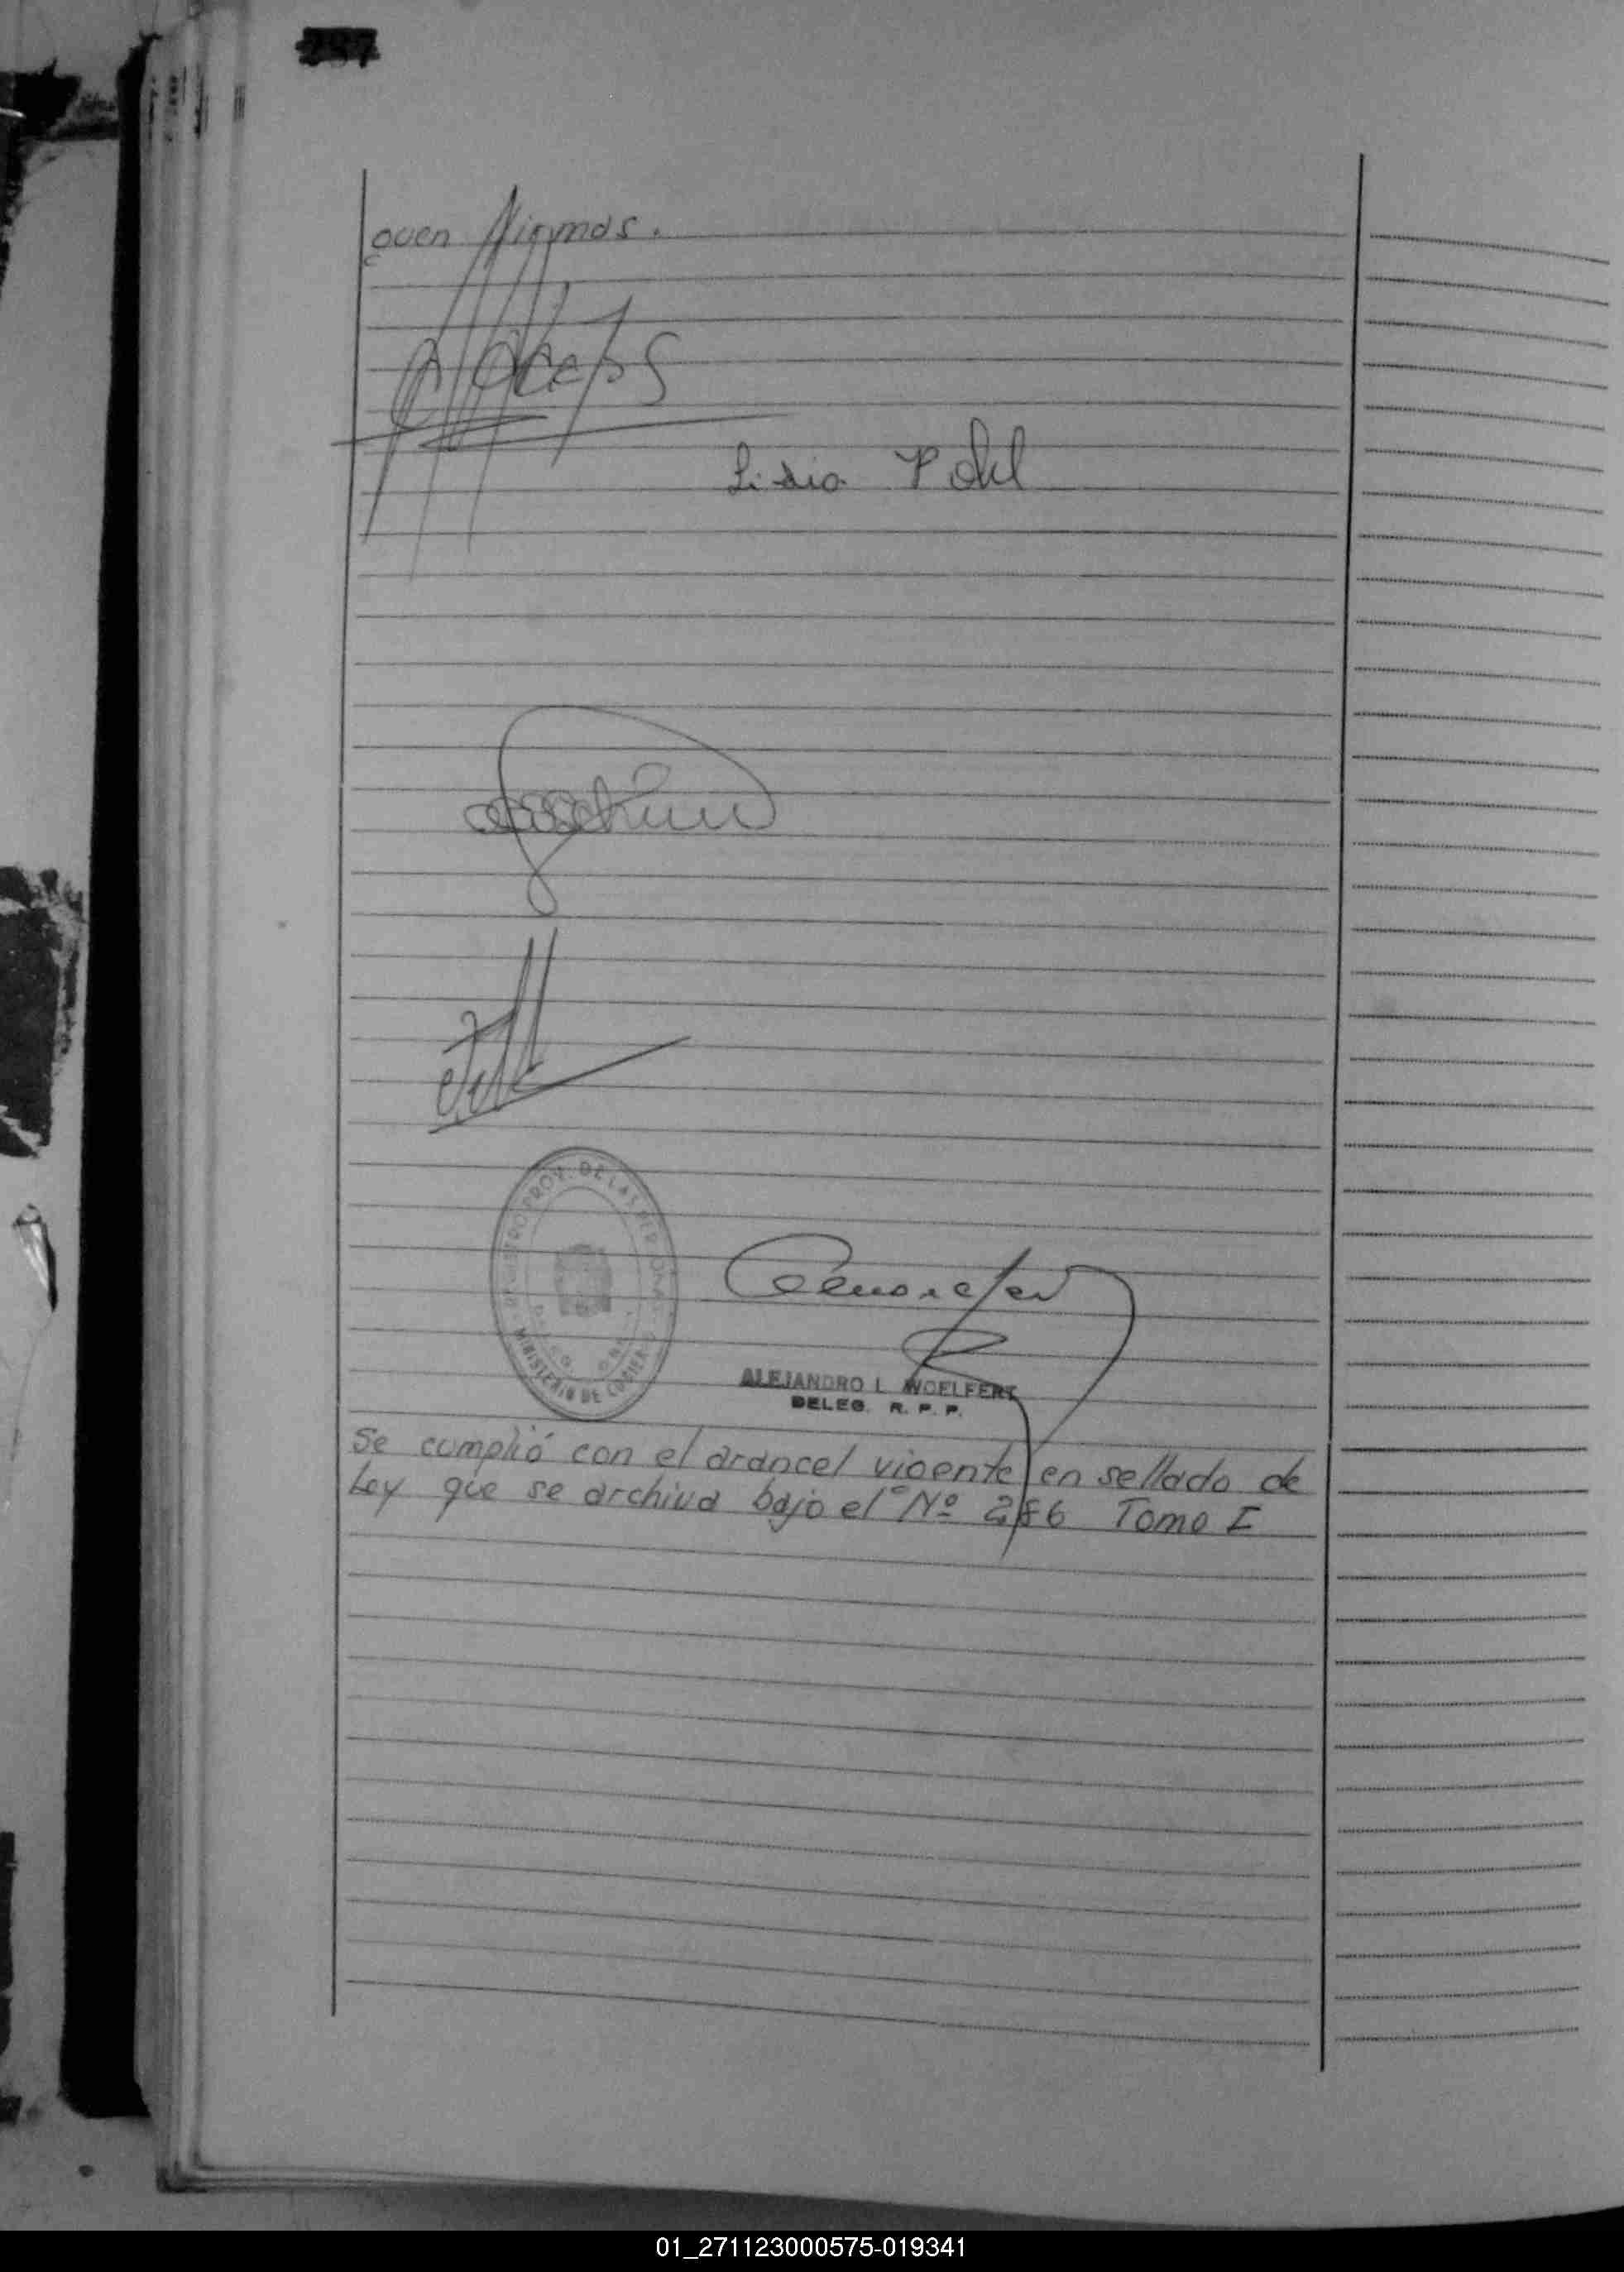 guen firmas.
Lidia Pohl
REGISTRO PROV. DE LAS PERSONAS
MINISTERIO DE GOBIERNO
ALEJANDRO L. WOELFERT
DELEG. R. P. P.
Se cumplió con el arancel vigente en sellado de
Ley que se archiva bajo el Nº 286 Tomo I
01_271123000575-019341